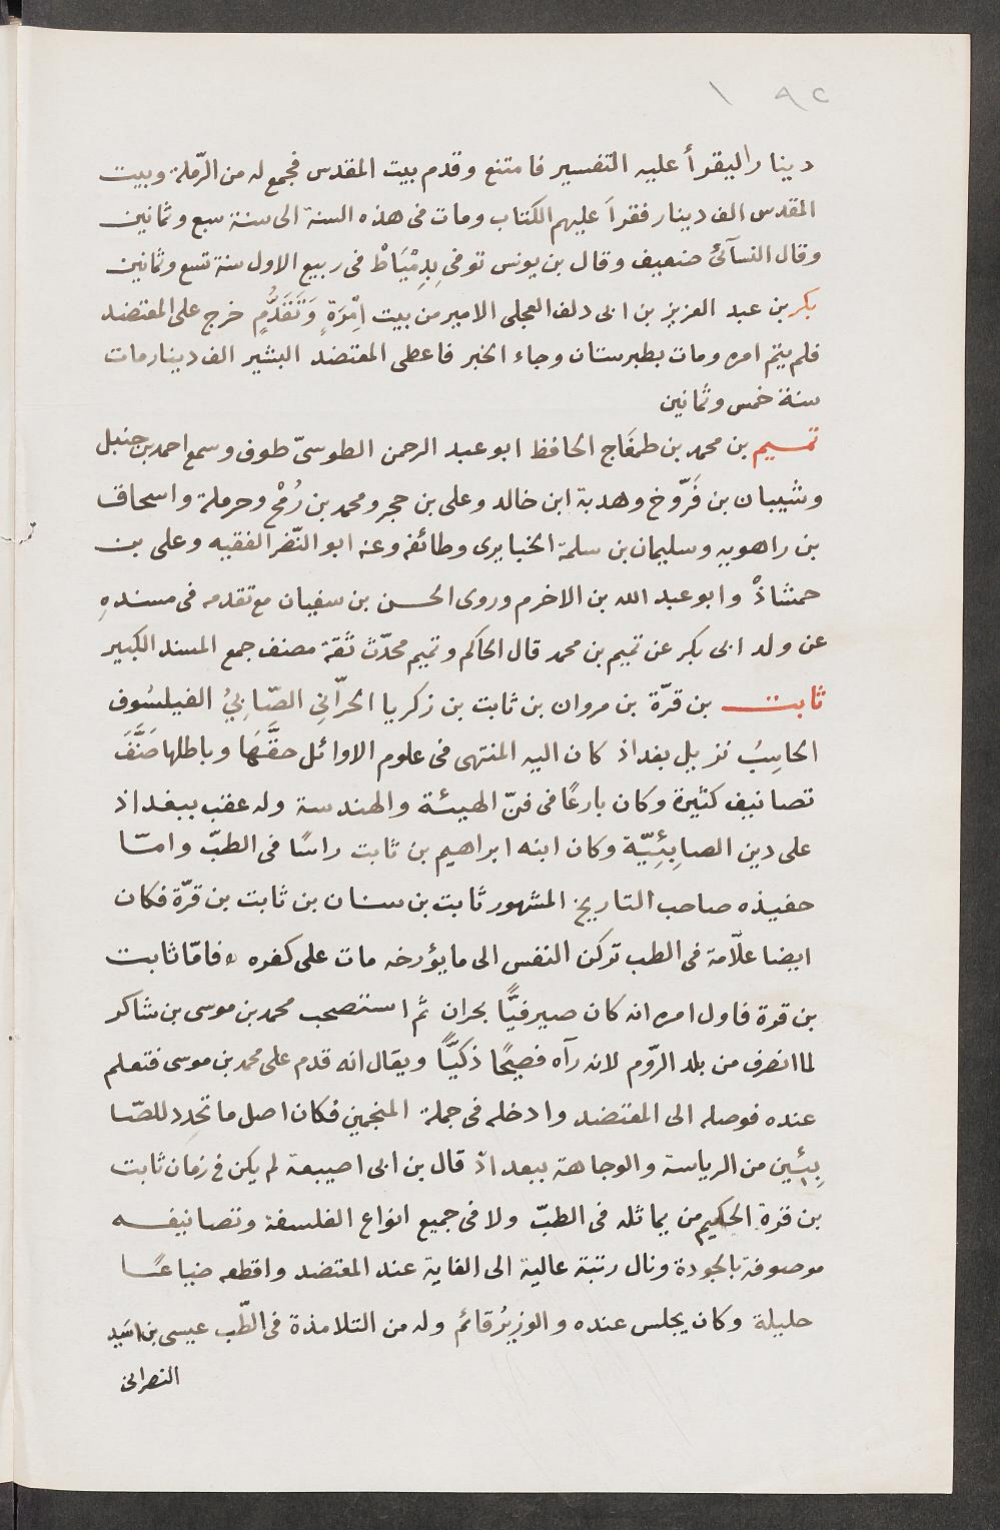 ١٩٢
دينا راليقرأ عليه التفسير فامتنع وقدم بيت المقدس فجمع له من الرّملة وبيت
المقدس الف دينار فقرأ عليهم الكتاب ومات فى هذه السنة الى سنة سبع وثمانين
وقال النسآئىّ ضعيف وقال بن يونس توفى بِدِمْيَاطْ فى ربيع الاول سنة تسع وثمانين
بكر بن عبد العزيز بن ابى دلف العجلى الامير من بيت اِمْرَةٍ وَتَقَدُّمٍ خرج على المعتضد
فلم يتم امره ومات بطبرستان وجاء الخبر فاعطى المعتضد البشير الف دينار مات
سنة خمس وثمانين
تميم بن محمد بن طمغاج الحافظ ابو عبد الرحمن الطوسىّ طوف وسمع احمد بن حنبل
وشيبان بن فَرّوخ وهدبة ابن خالد وعلى بن حجر ومحمد بن رُمْح وحرملة واسحاق
بن راهويه وسليمان بن سلمة الخبايرى وطائفة وعنه ابو النّضر الفقيه وعلى بن
حمشاذْ وابو عبد الله بن الاخرم وروى الحسن بن سفيان مع تقدمه فى مسندهِ
عن ولد ابى بكر عن تميم بن محمد قال الحاكم وتميم محدّث ثقة مصنف جمع المسند الكبير
ثابت بن قرّة بن مروان بن ثابت بن زكريا الحرّانِي الصّابِيُ الفيلسُوف
الحاسِبُ نزيل بغداذ كان اليه المنتهى فى علوم الاوائل حقَّهَا وباطلها صَنَّفَ
تصانيف كثيرة وكان بارعًا فى فنّ الهيئة والهندسة وله عقب ببغداذ
على دين الصابِئِيّة وكان ابنه ابراهيم بن ثابت راسًا فى الطبّ وامّا
حفيذه صاحب التاريخ المشهور ثابت بن سنان بن ثابت بن قرّة فكان
ايضا علّامة فى الطب تركن النفس الى ما يؤرخه مات على كفره ه فامّا ثابت
بن قرة فاول امره انه كان صيرفيًّا بحران ثم استصحب محمد بن موسى بن شاكر
لما انصرف من بلد الرّوم لانه رآه فصيحًا ذكيًّا ويقال انه قدم على محمد بن موسى فتعلم
عنده فوصله الى المعتضد وادخله فى جملة المنجمين فكان اصل ما تجدد للصّا
بِئين من الرياسة والوجاهة ببغداذ قال بن ابى اصيبعة لم يكن فى زمان ثابت
بن قرة الحكيم من يماثله فى الطبّ ولا فى جميع انواع الفلسفة وتصانيفه
موصوفة بالجودة ونال رتبة عالية الى الغاية عند المعتضد واقطعه ضياعًا
جليلة وكان يجلس عنده والوزيرُ قائم وله من التلامذة فى الطّب عيسى بن اسَيد
النصرانى